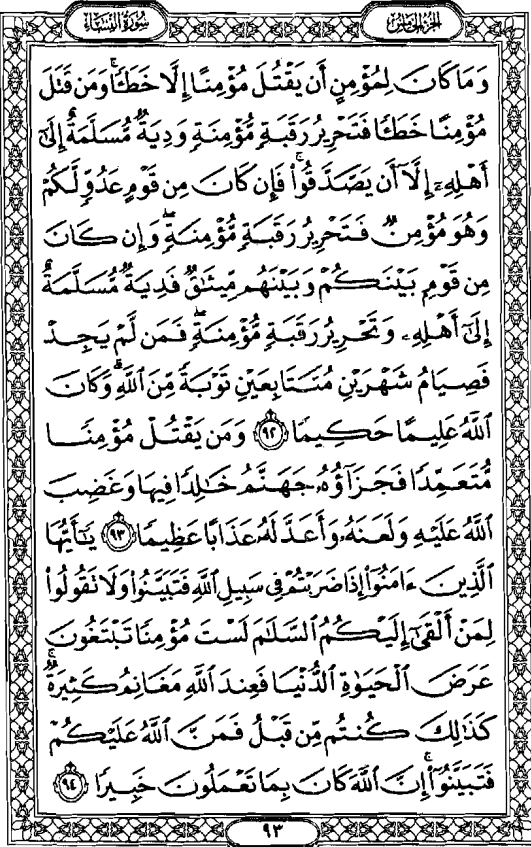 الجزء الخامس
سورة النساء
وَمَا كَانَ لِمُؤْمِنٍ أَن يَقْتُلَ مُؤْمِنًا إِلَّا خَطَـًٔاۚ وَمَن قَتَلَ
مُؤْمِنًا خَطَـًٔا فَتَحْرِيرُ رَقَبَةٍ مُّؤْمِنَةٍ وَدِيَةٌ مُّسَلَّمَةٌ إِلَىٰٓ
أَهْلِهِۦٓ إِلَّآ أَن يَصَّدَّقُوا۟ۚ فَإِن كَانَ مِن قَوْمٍ عَدُوٍّ لَّكُمْ
وَهُوَ مُؤْمِنٌ فَتَحْرِيرُ رَقَبَةٍ مُّؤْمِنَةٍۖ وَإِن كَانَ
مِن قَوْمٍۭ بَيْنَكُمْ وَبَيْنَهُم مِّيثَـٰقٌ فَدِيَةٌ مُّسَلَّمَةٌ
إِلَىٰٓ أَهْلِهِۦ وَتَحْرِيرُ رَقَبَةٍ مُّؤْمِنَةٍۖ فَمَن لَّمْ يَجِدْ
فَصِيَامُ شَهْرَيْنِ مُتَتَابِعَيْنِ تَوْبَةً مِّنَ ٱللَّهِۗ وَكَانَ
ٱللَّهُ عَلِيمًا حَكِيمًا ٩٢ وَمَن يَقْتُلْ مُؤْمِنًا
مُّتَعَمِّدًا فَجَزَآؤُهُۥ جَهَنَّمُ خَـٰلِدًا فِيهَا وَغَضِبَ
ٱللَّهُ عَلَيْهِ وَلَعَنَهُۥ وَأَعَدَّ لَهُۥ عَذَابًا عَظِيمًا ٩٣ يَـٰٓأَيُّهَا
ٱلَّذِينَ ءَامَنُوٓا۟ إِذَا ضَرَبْتُمْ فِى سَبِيلِ ٱللَّهِ فَتَبَيَّنُوا۟ وَلَا تَقُولُوا۟
لِمَنْ أَلْقَىٰٓ إِلَيْكُمُ ٱلسَّلَـٰمَ لَسْتَ مُؤْمِنًا تَبْتَغُونَ
عَرَضَ ٱلْحَيَوٰةِ ٱلدُّنْيَا فَعِندَ ٱللَّهِ مَغَانِمُ كَثِيرَةٌۚ
كَذَٰلِكَ كُنتُم مِّن قَبْلُ فَمَنَّ ٱللَّهُ عَلَيْكُمْ
فَتَبَيَّنُوٓا۟ۚ إِنَّ ٱللَّهَ كَانَ بِمَا تَعْمَلُونَ خَبِيرًا ٩٤
٩٣